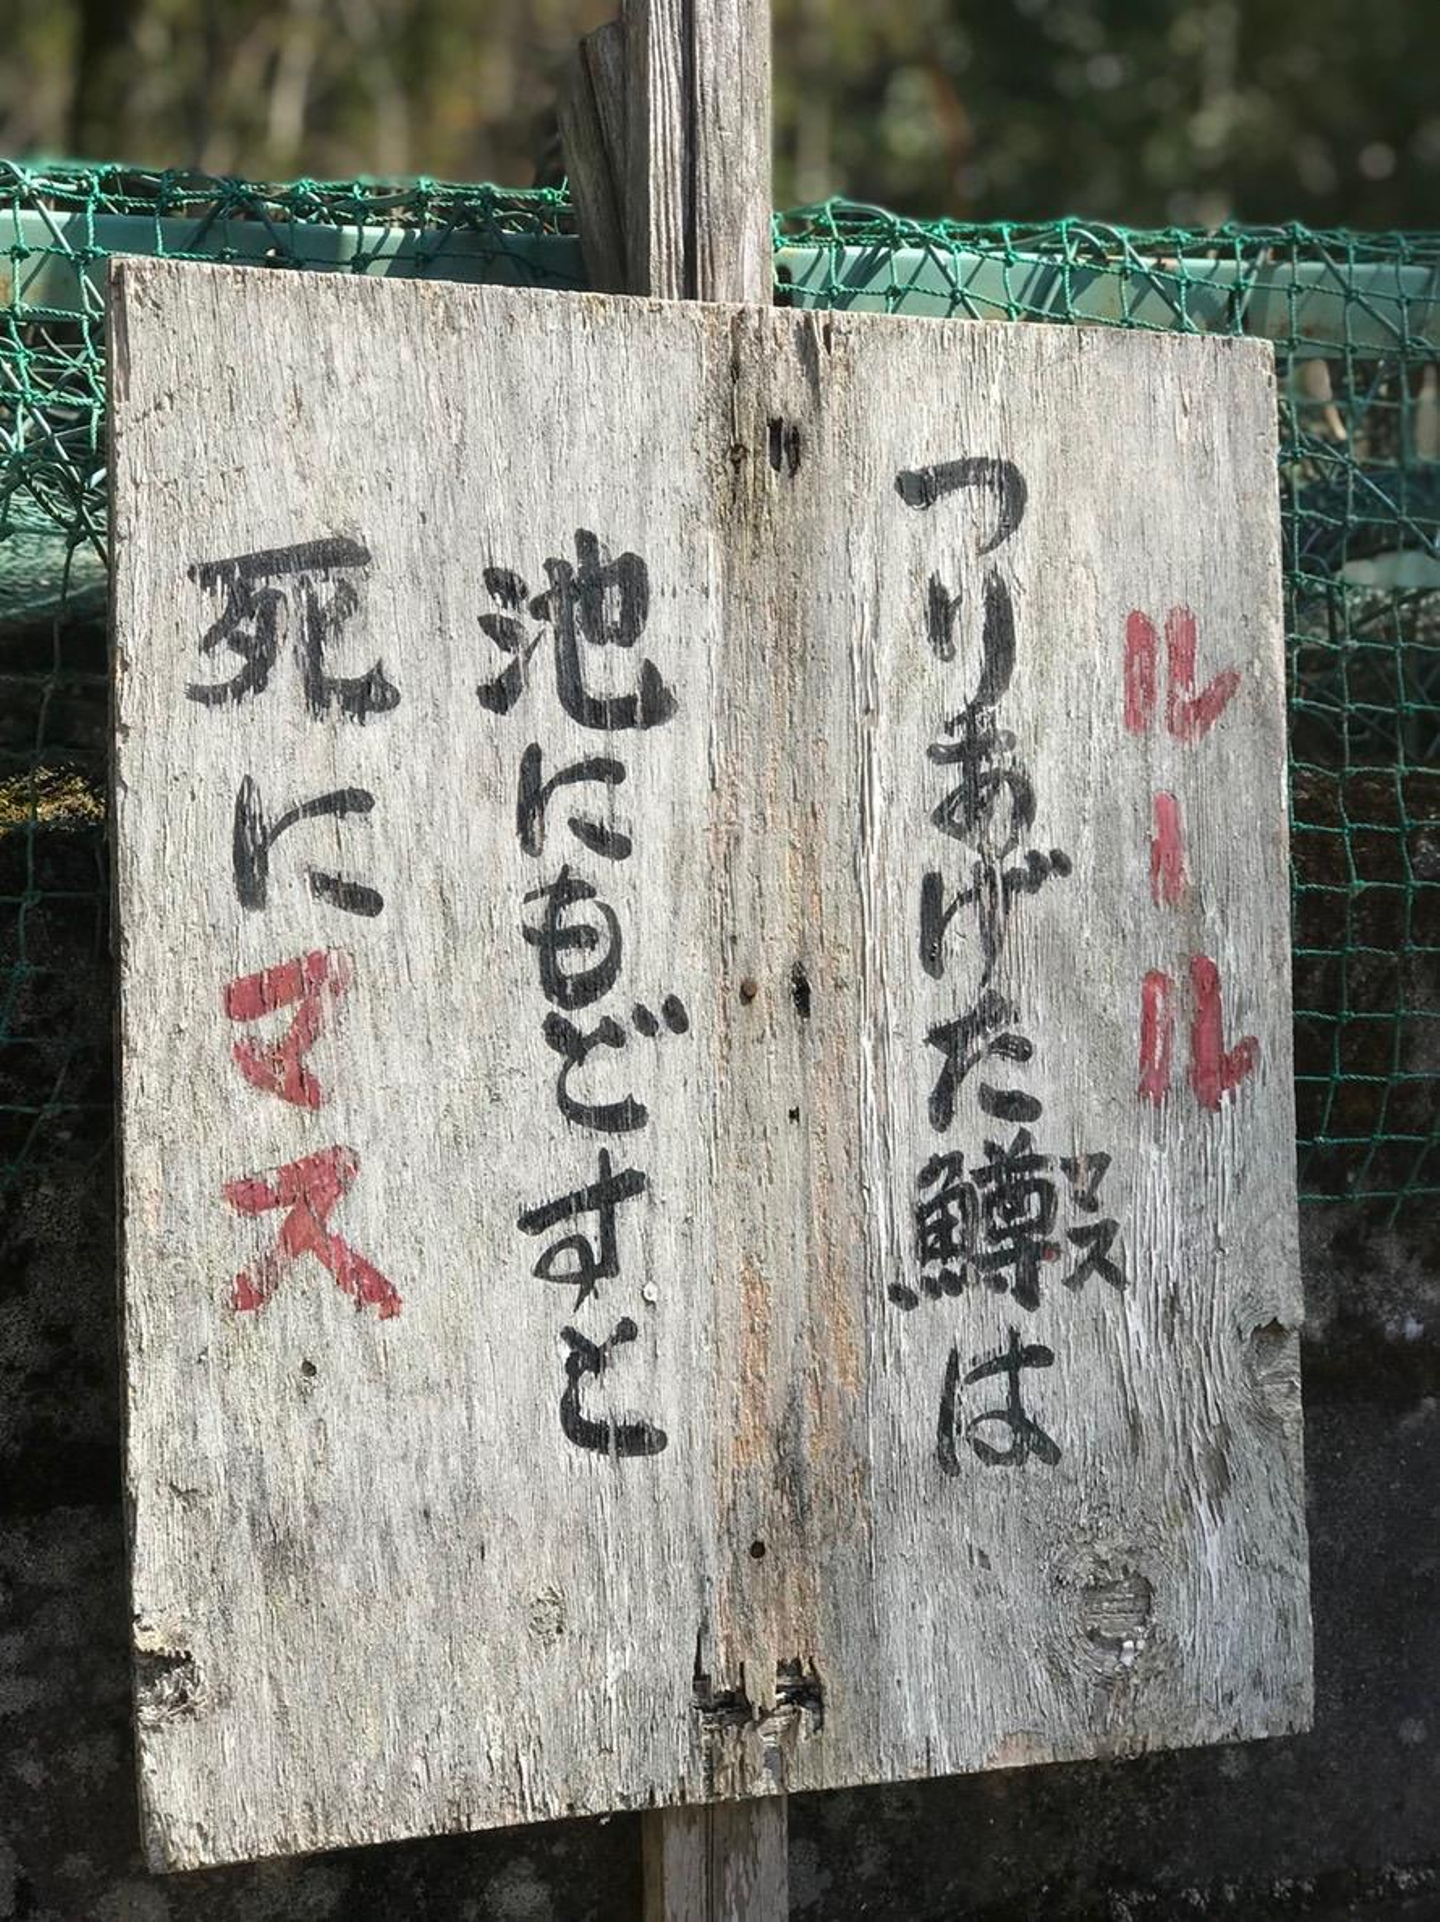 ルール
つりあげた鱒は
マス
池にもどすと
死にマス